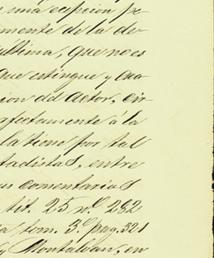 una escepcion pe-
mente de la de-
ultima, que no es
que estingue y cua-
cion del actor, cir-
rectamente á la
lation por tal
tadistas, entre
us comentarios
tit. 25 nº 282
ia tom. 3º pag. 321
y Montalvan, en